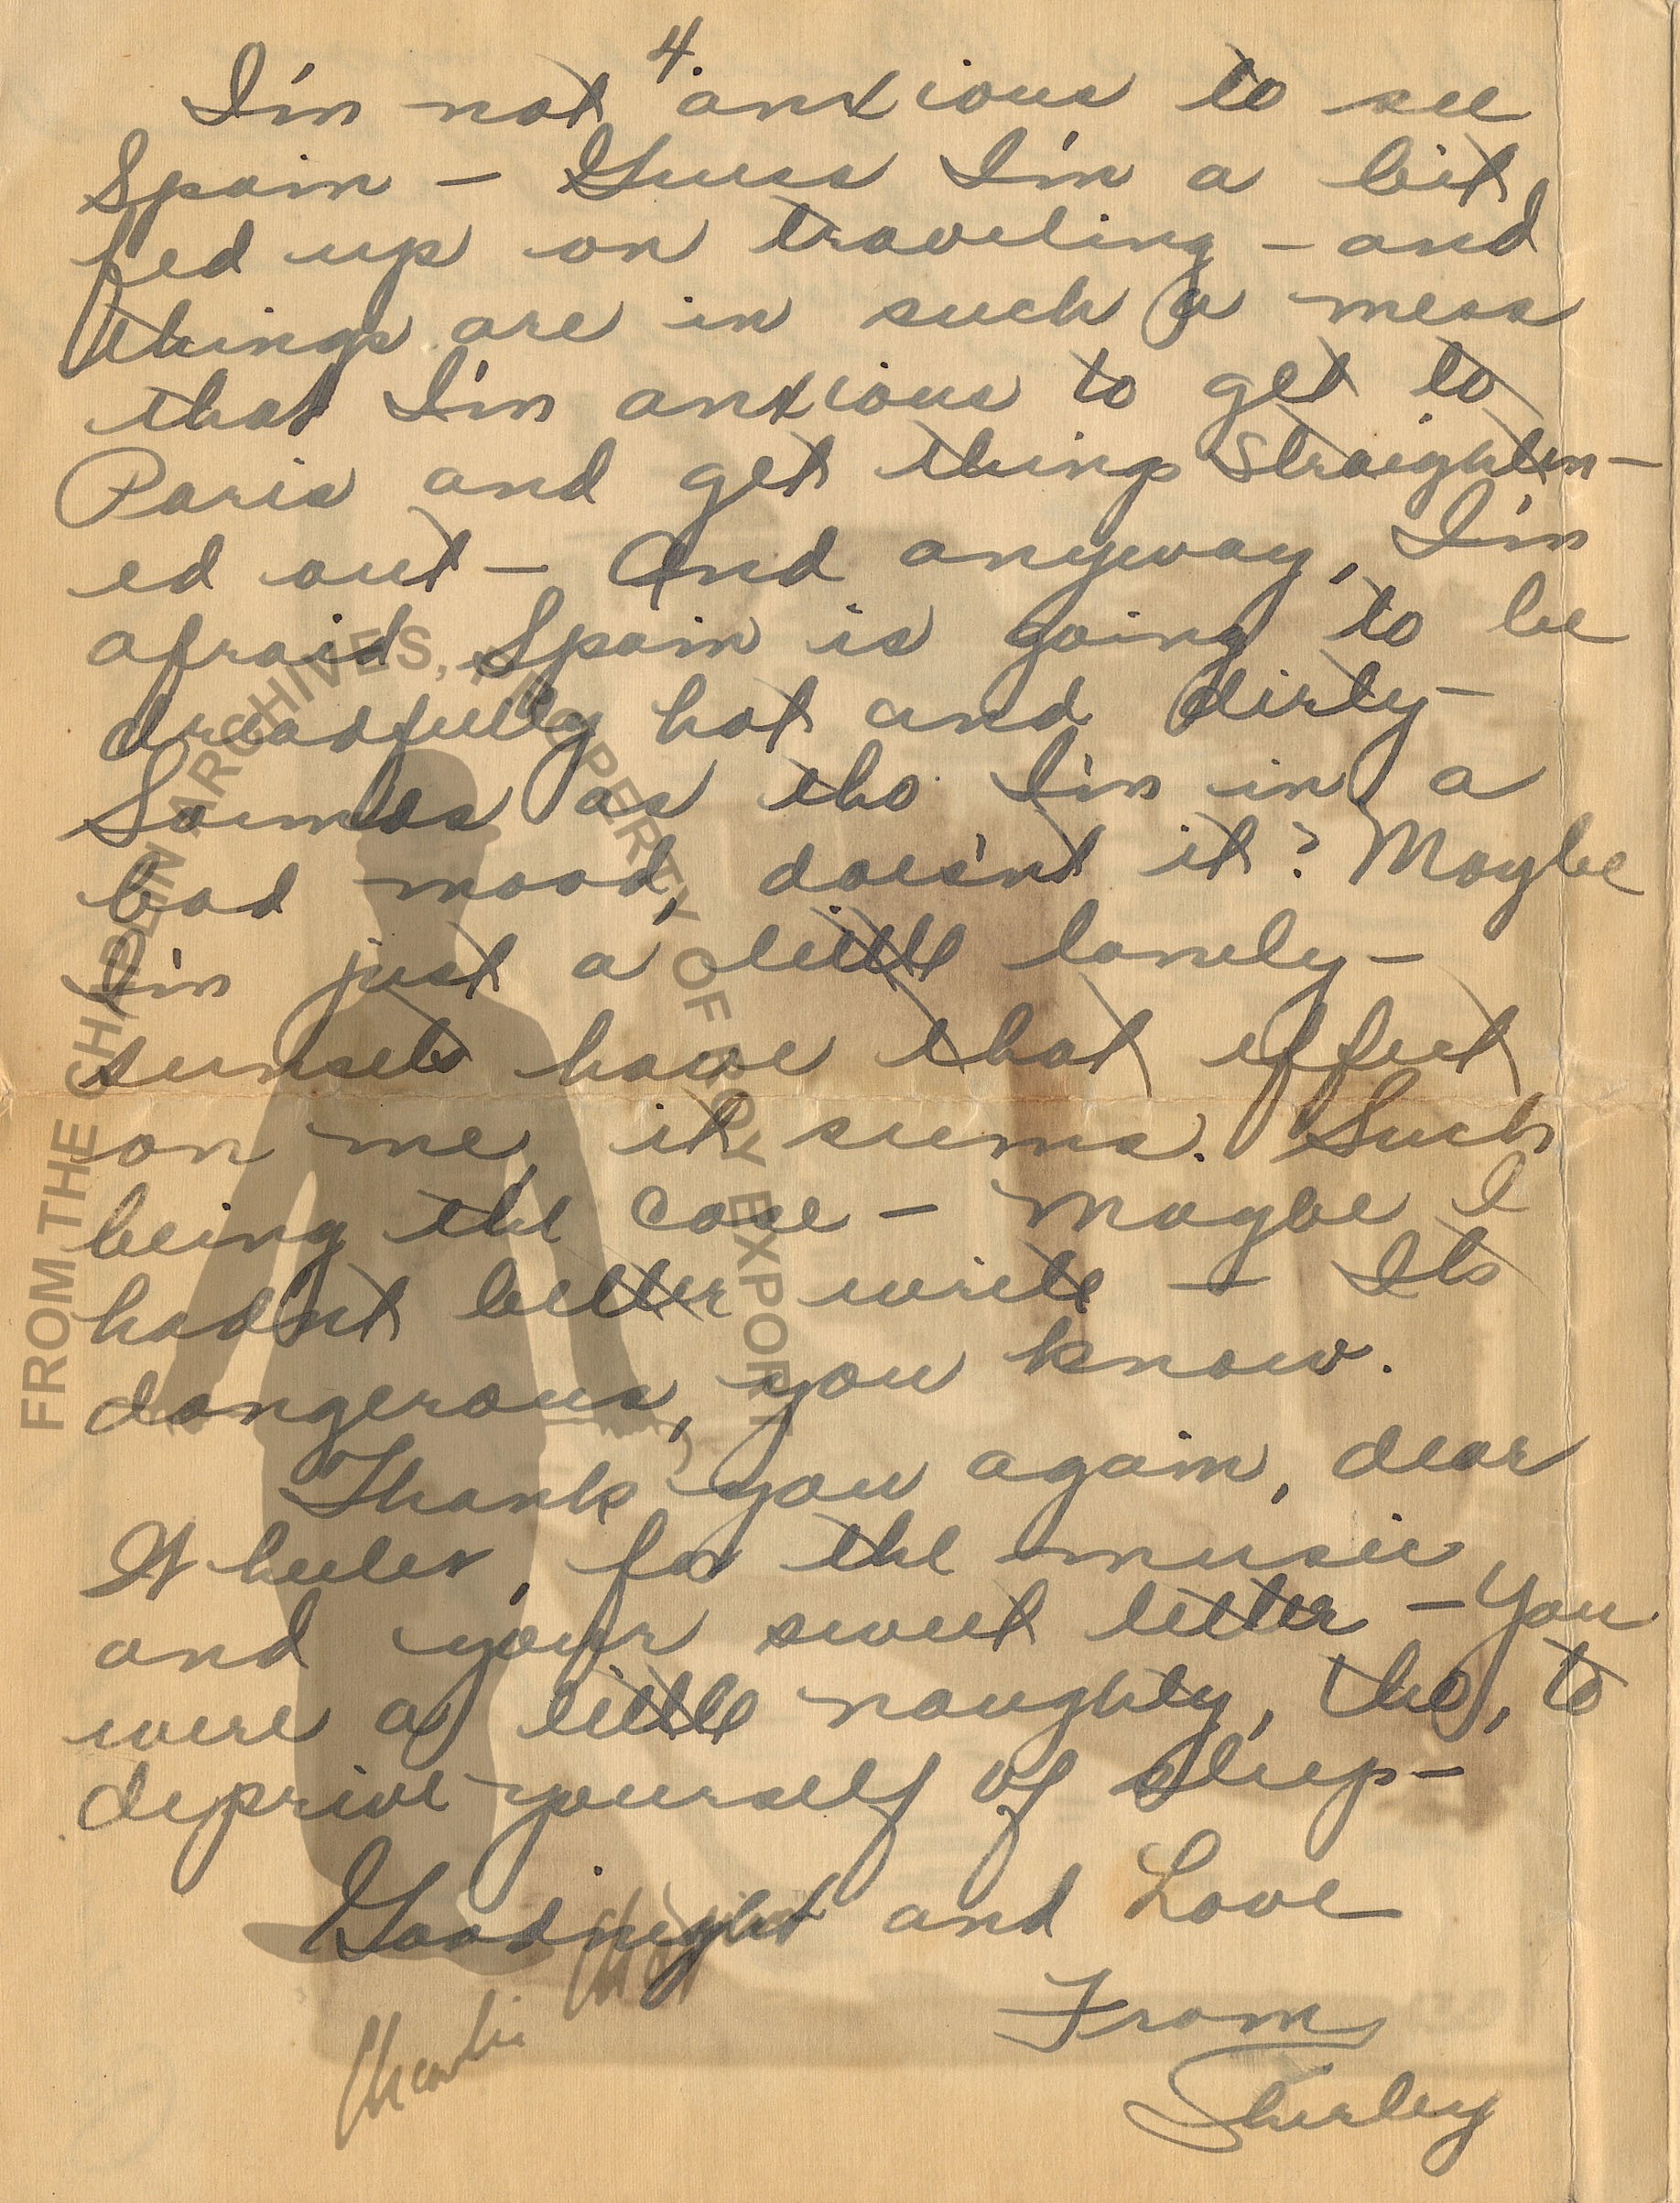 4.
I'm not anxious to see
Spain – Guess I'm a bit
fed up on traveling – and
things are in such a mess
that I'm anxious to get to
Paris and get things straighten–
ed out – And anyway, I'm
afraid Spain is going to be
dreadfully hot and dirty –
Sounds as tho I'm in a
bad mood, doesn't it? Maybe
I'm just a little lonely –
sunsets have that effect
on me, it seems. Such
being the case – maybe I
hadn't better write – Its
dangerous, you know.
Thank you again, dear
Wheeler, for the music
and your sweet letter – You
were a little naughty, tho, to
deprive yourself of sleep –
Goodnight and Love
From
Shirley
FROM THE CHAPLIN ARCHIVES, PROPERTY OF ROY EXPORT
Charlie Chaplin